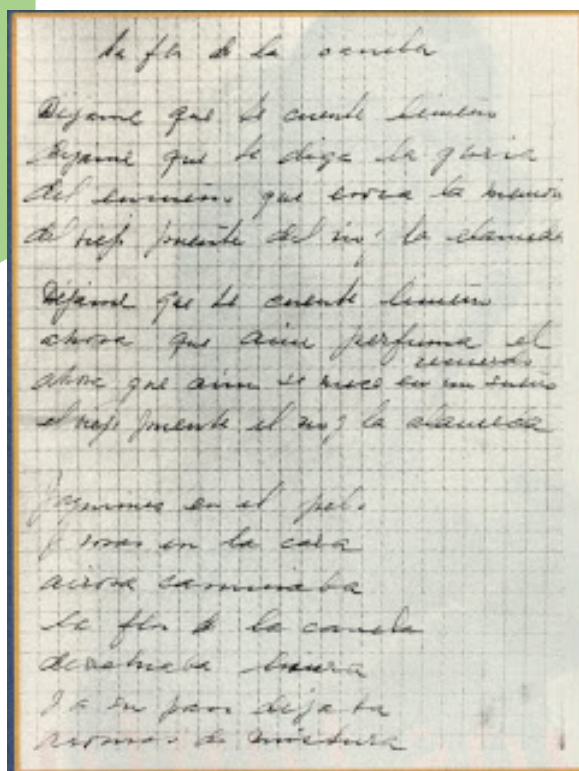 La flor de la canela
Déjame que te cuente limeño
Déjame que te diga la gloria
del ensueño que evoca la memoria
del viejo puente del río y la alameda
Déjame que te cuente limeño
ahora que aún perfuma el
recuerdo
ahora que aún se mece en un sueño
el viejo puente el río y la alameda
Jazmines en el pelo
y rosas en la cara
airosa caminaba
la flor de la canela
derramaba lisura
y a su paso dejaba
aromas de mistura